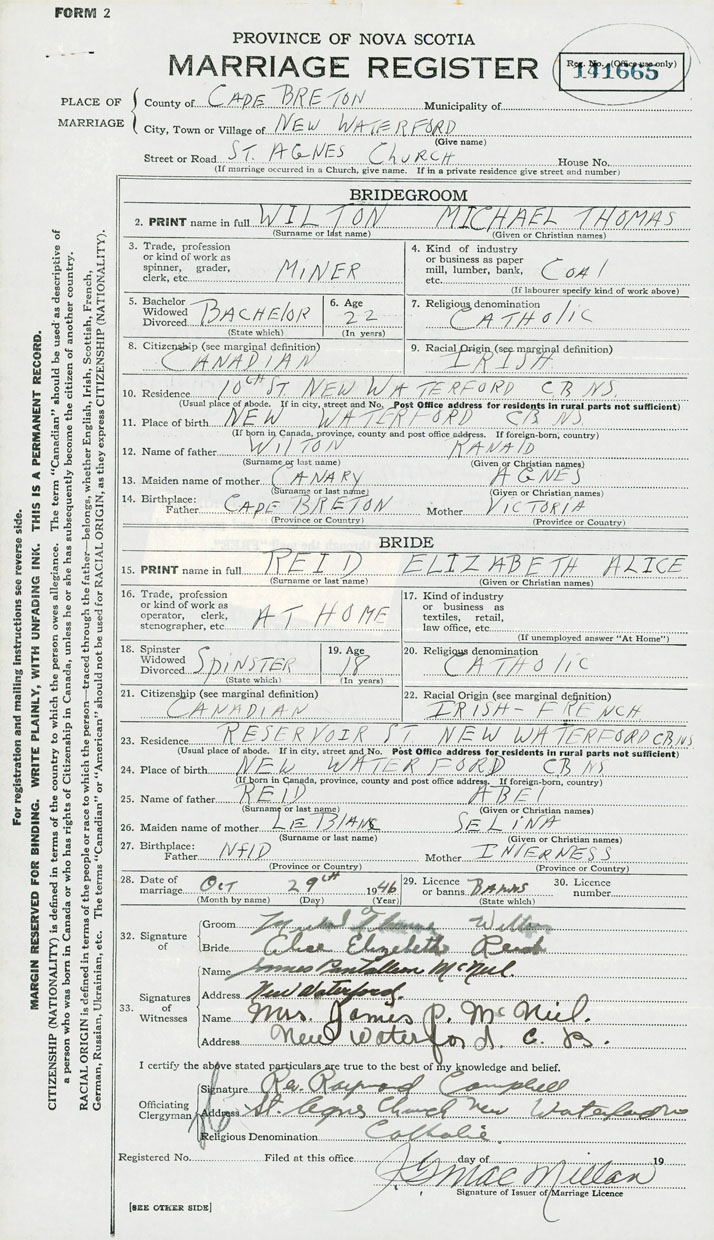 FORM 2
PROVINCE OF NOVA SCOTIA
MARRIAGE REGISTER
Reg. No. (Office use only)
141665
PLACE OF MARRIAGE
County of CAPE BRETON Municipality of
City, Town or Village of NEW WATERFORD
(Give name)
Street or Road ST. AGNES CHURCH House No.
(If marriage occurred in a Church, give name. If in a private residence give street and number)
BRIDEGROOM
2. PRINT name in full WILTON MICHAEL THOMAS
(Surname or last name) (Given or Christian names)
3. Trade, profession or kind of work as spinner, grader, clerk, etc. MINER
4. Kind of industry or business as paper mill, lumber, bank, etc. COAl
(If labourer specify kind of work above)
5. Bachelor Widowed Divorced BACHELOR
(State which)
6. Age 22
(In years)
7. Religious denomination CATHOLIC
8. Citizenship (see marginal definition) CANADIAN
9. Racial Origin (see marginal definition) IRISH
10. Residence 10th ST NEW WATERFORD CB NS
(Usual place of abode. If in city, street and No. Post Office address for residents in rural parts not sufficient)
11. Place of birth NEW WATERFORD CB NS
(If born in Canada, province, county and post office address. If foreign-born, country)
12. Name of father WILTON
(Surname or last name) (Given or Christian names)
13. Maiden name of mother CANARY AGNES
(Surname or last name) (Given or Christian names)
14. Birthplace: Father CAPE BRETON Mother VICTORIA
(Province or Country) (Province or Country)
BRIDE
15. PRINT name in full REID ELIZABETH ALICE
(Surname or last name) (Given or Christian names)
16. Trade, profession or kind of work as operator, clerk, stenographer, etc. AT HOME
17. Kind of industry or business as textiles, retail, law office, etc.
(If unemployed answer "At Home")
18. Spinster Widowed Divorced SPINSTER
(State which)
19. Age 18
(In years)
20. Religious denomination CATHOLIC
21. Citizenship (see marginal definition) CANADIAN
22. Racial Origin (see marginal definition) IRISH-FRENCH
23. Residence RESERVOIR ST. NEW WATERFORD CB NS
(Usual place of abode. If in city, street and No. Post Office address for residents in rural parts not sufficient)
24. Place of birth NEW WATERFORD CB NS
(If born in Canada, province, county and post office address. If foreign-born, country)
25. Name of father REID ABEl
(Surname or last name) (Given or Christian names)
26. Maiden name of mother LEBlANC SELINA
(Surname or last name) (Given or Christian names)
27. Birthplace: Father NflD Mother INVERNESS
(Province or Country) (Province or Country)
28. Date of marriage Oct 29th 1946
(Month by name) (Day) (Year)
29. Licence or banns BANNS
(State which)
30. Licence number
32. Signature of
Groom Michael Thomas Wilton
Bride Alice Elizabeth Reid
33. Signatures of Witnesses
Name James McNeil
Address New Waterford.
Name Mrs. James P. McNeil.
Address New Waterford. C. B.
I certify the above stated particulars are true to the best of my knowledge and belief.
Officiating Clergyman
Signature Rev. Raymond Campbell
Address St. Agnes Church New Waterford
Religious Denomination Catholic.
Registered No. Filed at this office day of 19
J G MacMillan
Signature of Issuer of Marriage Licence
[SEE OTHER SIDE]
For registration and mailing instructions see reverse side.
MARGIN RESERVED FOR BINDING. WRITE PLAINLY, WITH UNFADING INK. THIS IS A PERMANENT RECORD.
CITIZENSHIP (NATIONALITY) is defined in terms of the country to which the person owes allegiance. The term "Canadian" should be used as descriptive of
a person who was born in Canada or who has rights of Citizenship in Canada, unless he or she has subsequently become the citizen of another country.
RACIAL ORIGIN is defined in terms of the people or race to which the person—traced through the father—belongs, whether English, Irish, Scottish, French,
German, Russian, Ukrainian, etc. The terms "Canadian" or "American" should not be used for RACIAL ORIGIN, as they express CITIZENSHIP (NATIONALITY).